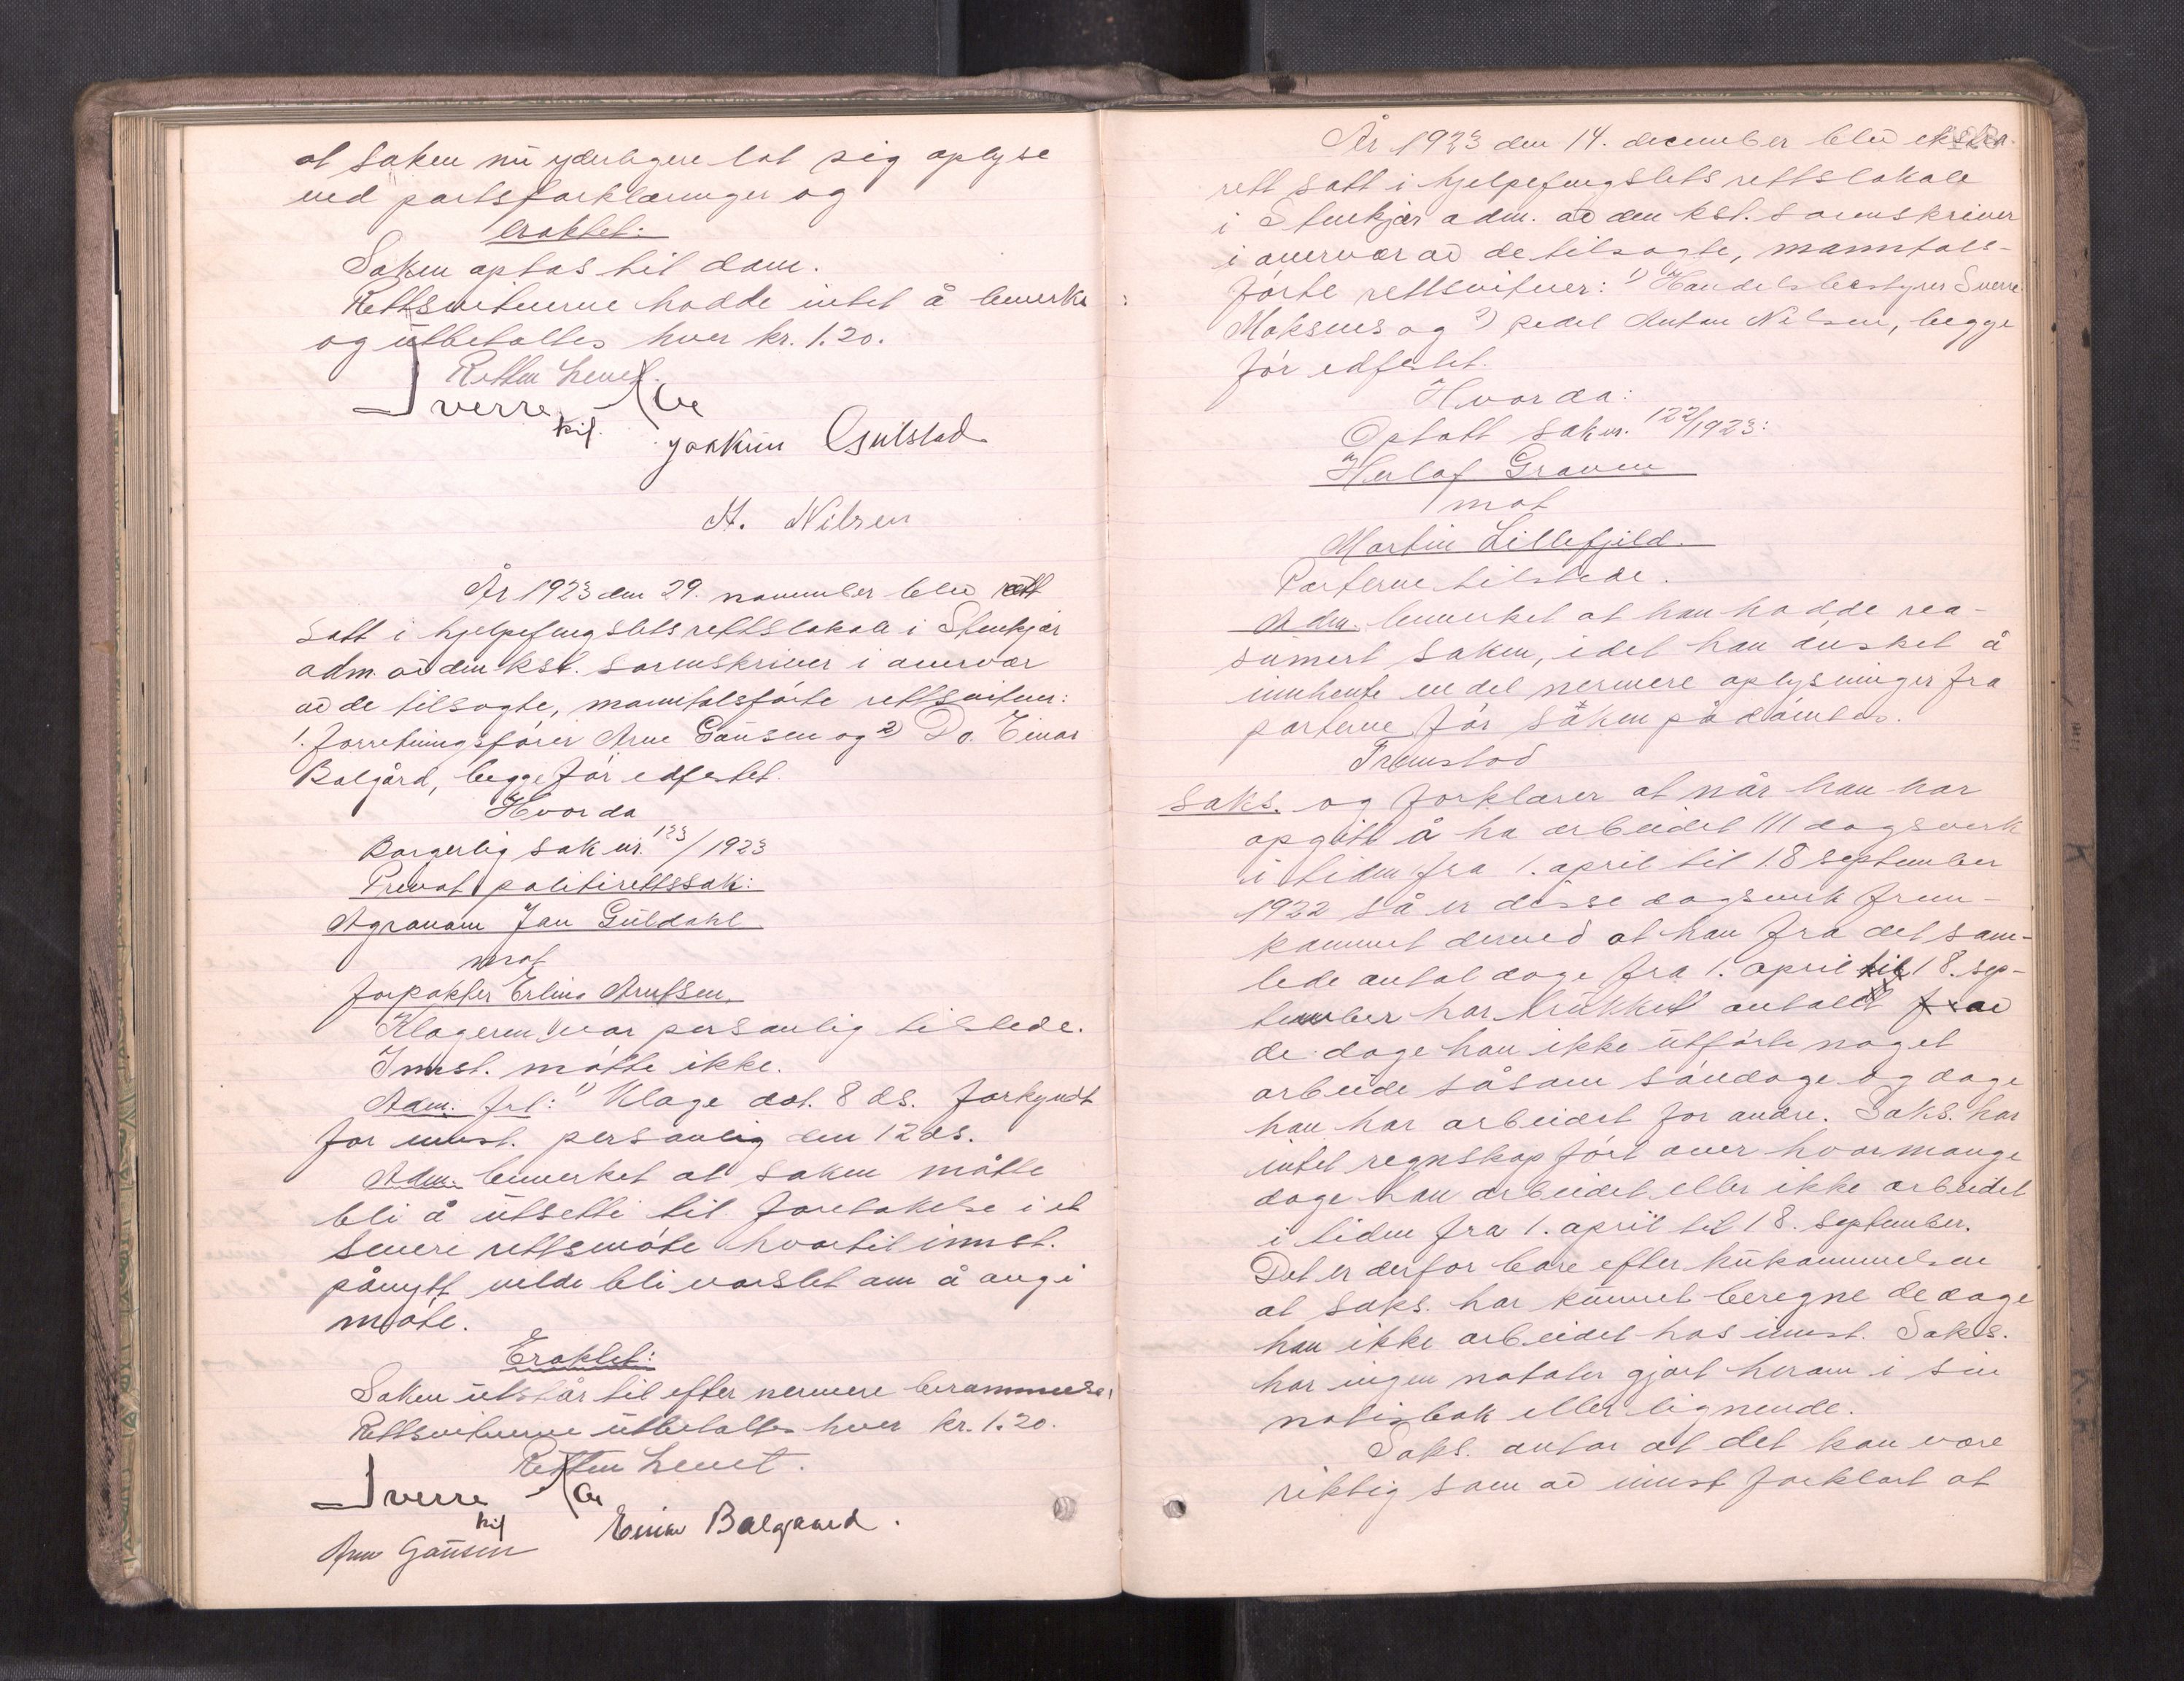 at saken nu yderligere lot sig oplyse
ved partsforklaringer og
eraktet:
Saken optas til dom.
Rettsvitnerne hadde intet å bemerke
og utbetaltes hver kr. 1.20.
Retten hevet.
Sverre Aae
kst.
Joakim Gulstad
A. Nilsen
År 1923 den 29. november blev rett
satt i hjelpefengslets rettslokale i Stenkjær
adm. av den kst. sorenskriver i overvær
av de tilsagte, manntalsførte rettsvitner:
1. forretningsfører Arne Gausen og 2) Do. Einar
Balgård, begge før edfestet.
Hvorda
Borgerlig sak nr. 123/1923
Privat politirettssak:
Agronom Jan Guldahl
mot
forpakter Erling Arntsen.
Klageren var personlig tilstede.
Innst. møtte ikke.
Adm. frl: 1) Klage dat. 8 ds. forkyndt
for innst. personlig den 12 ds.
Adm. bemerket at saken måtte
bli å utsette til foretakelse i et
senere rettsmøte hvortil innst.
pånytt vilde bli varslet om å angi
møte.
Eraktet:
Saken utstår til efter nermere berammelse.
Rettsvitnerne utbetaltes hver kr. 1.20.
Retten hevet.
Sverre Aae
kst
Arne Gausen Einar Balgaard.
År 1923 den 14. december blev ekstra
rett satt i hjelpefengslets rettslokale
i Stenkjær adm. av den kst. sorenskriver
i overvær av de tilsagte, manntall-
førte rettsvitner: 1) Handelsbestyrer Sverre
Moksnes og 2) pedel Anton Nilsen, begge
før edfestet.
Hvorda:
Optatt sak nr. 122/1923:
Herlof Graven
mot
Martin Lillefjeld.
Parterne tilstede.
Adm. bemerket at han hadde rea-
sumert saken, idet han ønsket å
innhente en del nermere oplysninger fra
parterne før saken pådømtes.
Fremstod
Saks. og forklarer at når han har
opgitt å ha arbeidet 111 dagsverk
i tiden fra 1. april til 18 september
1922 så er disse dagsverk frem-
kommet derved at han fra det sam-
lede antal dage fra 1. april til 18. sep-
tember har trukket antallet av
de dage han ikke utførte noget
arbeide såsom søndage og dage
han har arbeidet for andre. Saks. har
intet regnskap ført over hvormange
dage han arbeidet eller ikke arbeidet
i tiden fra 1. april til 18. september.
Det er derfor bare efter hukommelsen
at saks. har kunnet beregne de dage
han ikke arbeidet hos innst. Saks.
har ingen notater gjort herom i sin
notisbok eller lignende.
Saks. antar at det kan være
riktig som av innst forklart at